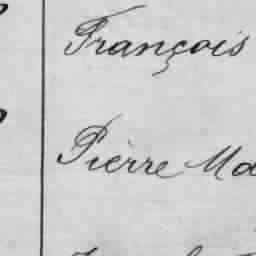 François
Pierre Ma